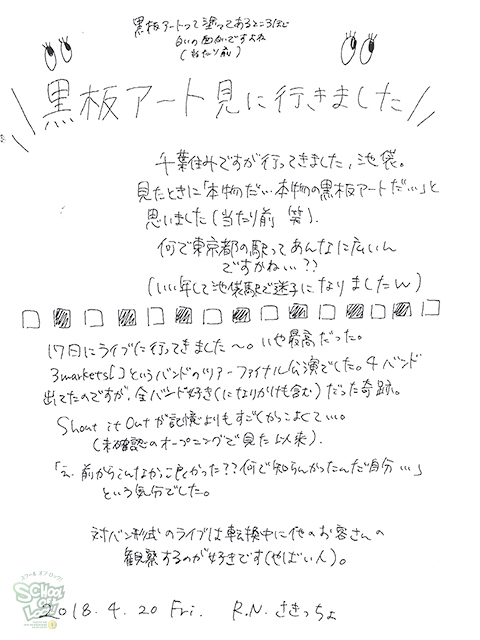 黒板アートって塗ってあるところほど
白いの面白いですよね
(当たり前)
黒板アート見に行きました
千葉住みですが行ってきました、池袋。
見たときに「本物だ…本物の黒板アートだ…」と
思いました(当たり前 笑)。
何で東京都の駅ってあんなに広いん
ですかね…??
(いい年して池袋駅で迷子になりましたw)
17日にライブに行ってきました〜。いや最高だった。
3markets[ ]というバンドのツアーファイナル公演でした。4バンド
出てたのですが、全バンド好き(になりかけも含む)だった奇跡。
Shout it Outが記憶よりもすごくかっこよくて…。
(未確認のオープニングで見た以来)。
「え、前からこんなかっこ良かった??何で知らんかったんだ自分…」
という気分でした。
対バン形式のライブは転換中に他のお客さんの
観察するのが好きです(やばい人)。
スクール オブ ロック!
SCHOOL OF LOCK!
2018.4.20 Fri. R.N. さきっちょ